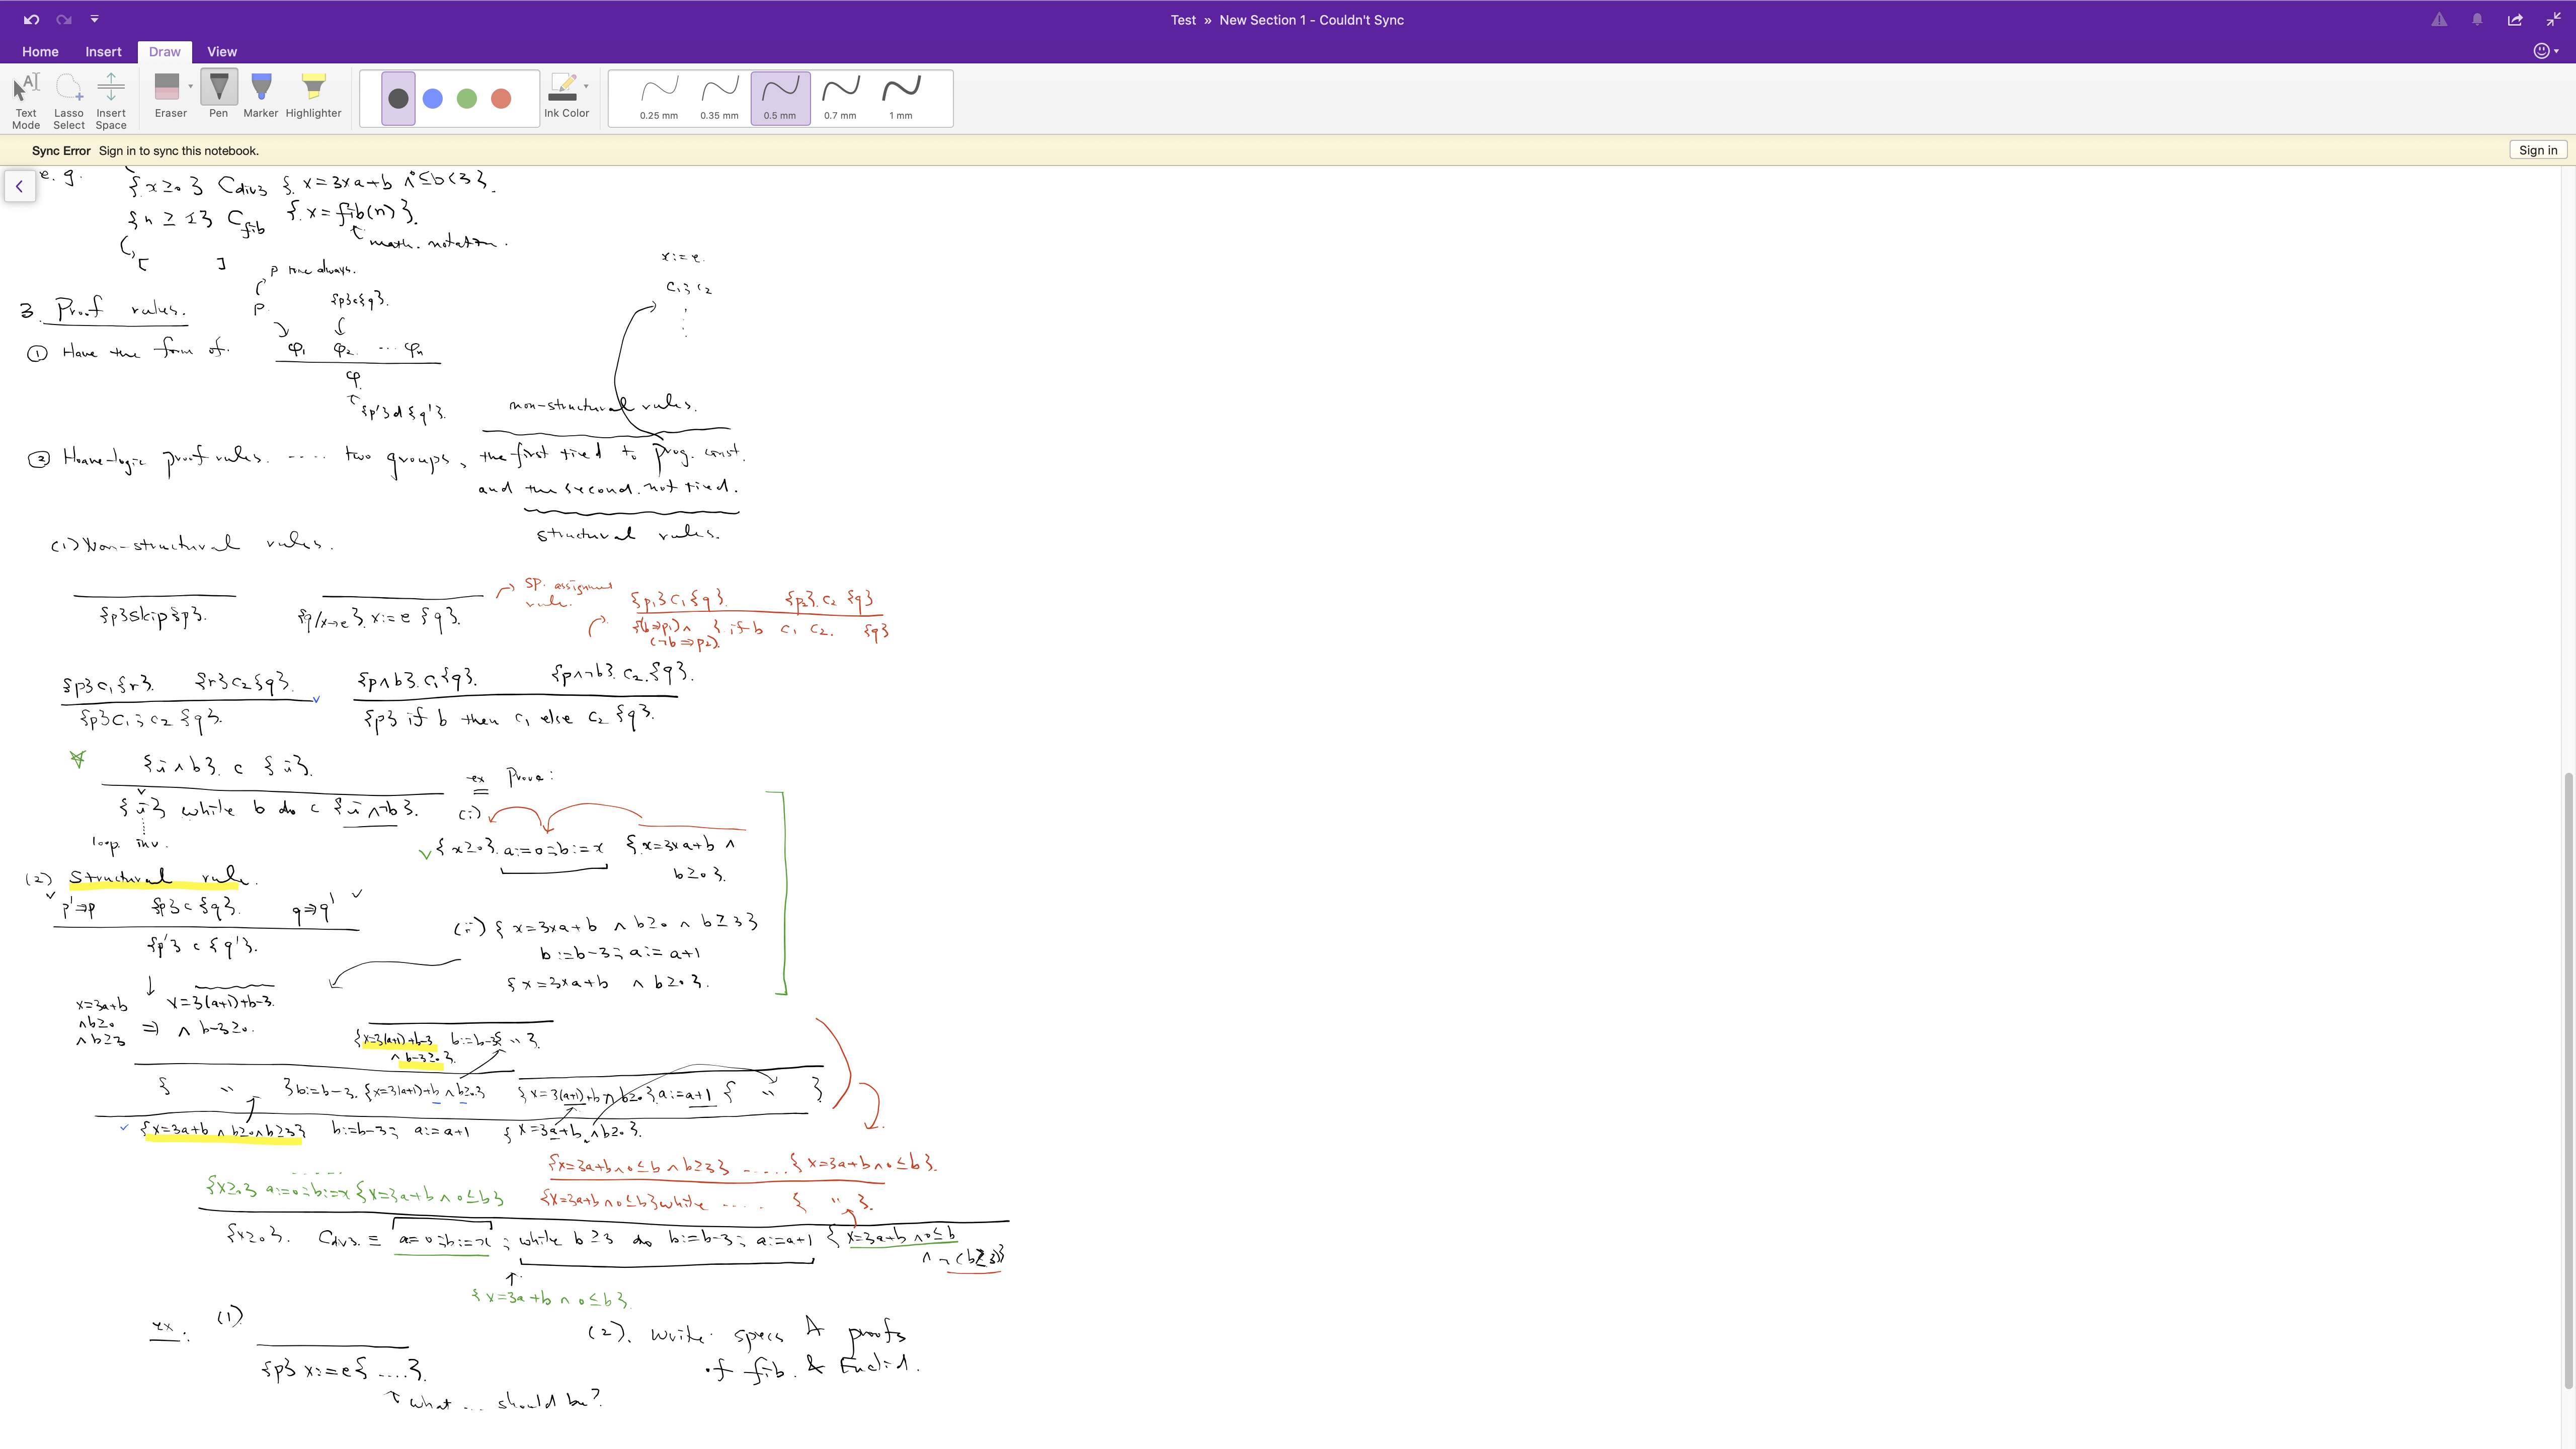 Test » New Section 1 - Couldn't Sync
Home Insert Draw View
Text Mode
Lasso Select
Insert Space
Eraser
Pen
Marker
Highlighter
Ink Color
0.25 mm
0.35 mm
0.5 mm
0.7 mm
1 mm
Sync Error Sign in to sync this notebook.
Sign in
e.g. {x≥0} Cdiv3 {x=3×a+b ∧ 0≤b<3}.
{n ≥ 1} Cfib {x=fib(n)}.
math. notation.
[ ]
p true always.
p. {p}c{q}.
3. Proof rules.
① Have the form of. φ1 φ2 ... φn
φ
{p'}d{q'}.
x:=e.
c1; c2
non-structural rules.
② Hoare-logic proof rules. .... two groups, the first tied to prog. const.
and the second. not tied.
structural rules.
(1) Non-structural rules.
{p}skip{p}.
{q/x→e}. x:=e {q}.
SP. assignment rule.
{p1}C1{q}. {p2}.C2 {q}
{(b⇒p1)∧ } if b C1 C2. {q}
(¬b⇒p2).
{p}c1{r}. {r}c2{q}.
{p}c1; c2 {q}.
{p∧b}. c1{q}. {p∧¬b}. c2.{q}.
{p} if b then c1 else c2 {q}.
{i∧b}. c {i}.
{i} while b do c {i∧¬b}.
loop. inv.
ex Prove:
(i)
{x≥0}. a:=0; b:=x {x=3×a+b ∧
b≥0}.
(2) Structural rule.
p'⇒p {p}c{q}. q⇒q'
{p'} c {q'}.
(ii) { x=3×a+b ∧ b≥0 ∧ b≥3}
b:=b-3; a:=a+1
{x=3×a+b ∧ b≥0}.
x=3a+b x=3(a+1)+b-3.
∧b≥0 ⇒ ∧ b-3≥0.
∧b≥3
{x=3(a+1)+b-3 b:=b-3{ " }.
∧ b-3≥0}.
{ " }b:=b-3. {x=3(a+1)+b ∧ b≥0} {x=3(a+1)+b ∧ b≥0}a:=a+1 { " }
{x=3a+b ∧ b≥0∧b≥3} b:=b-3; a:=a+1 {x=3a+b ∧b≥0}.
{x=3a+b∧0≤b ∧ b≥3} ..... {x=3a+b∧0≤b}.
{x≥0} a:=0; b:=x {x=3a+b ∧ 0≤b} {x=3a+b∧0≤b}while ..... { " }.
{x≥0}. Cdiv3 ≡ a=0; b:=x ; while b≥3 do b:=b-3; a:=a+1 {x=3a+b ∧0≤b
∧ ¬(b≥3)}
{x=3a+b ∧ 0≤b}.
ex: (1)
{p} x:=e{ ....}.
what ... should be?
(2). Write specs & proofs
of fib. & Euclid.